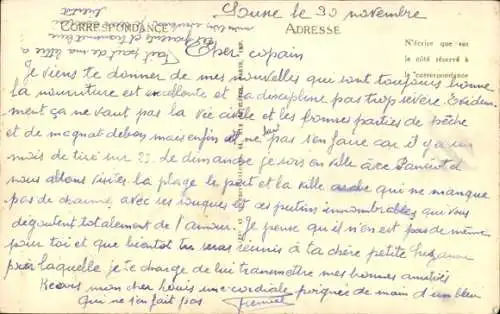 CORRESPONDANCE
ADRESSE
N'écrire que sur
le côté réservé à
la correspondance
le 30 novembre
cher copain
Je viens te donner de mes nouvelles qui sont toujours bonne
la nourriture est excellente et la discipline pas trop sévère. Evidem
ment ça ne vaut pas la vie civile et les bonnes parties de pêche
et de mais enfin il ne faut pas s'en faire car il y a un
mois de tiré sur 23. Le dimanche je sors en ville avec
nous allons visiter la plage le port et la ville arabe qui ne manque
pas de charme, avec ses souques et ces putins innombrables qui vous
dégoutent totalement de l'amour. Je pense qu'il n'en est pas de même
pour toi et que bientôt tu seras réunis à ta chère petite Suzanne
pour laquelle je te charge de lui transmettre mes bonnes amitiés
Reçois mon cher Louis une cordiale poignée de main d'un bleu
Qui ne s'en fait pas